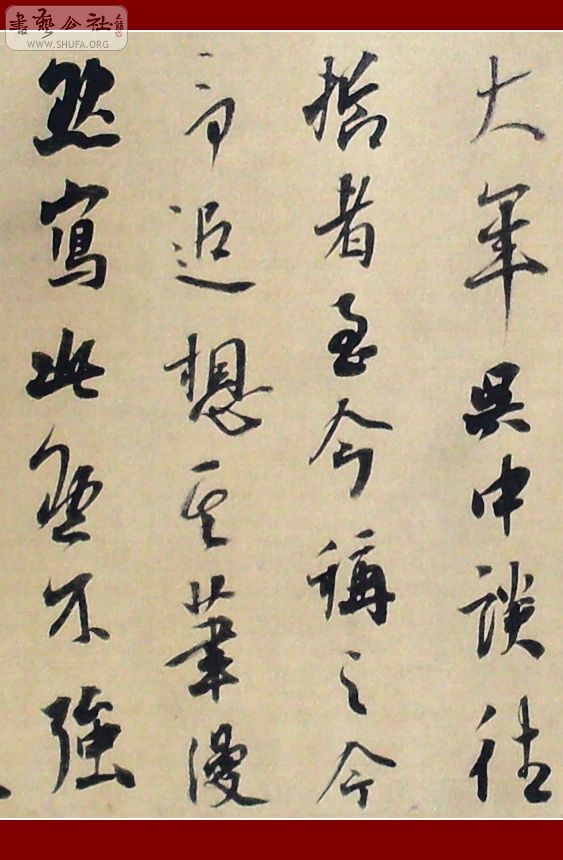 書藝公社
WWW.SHUFA.ORG
大年吳中談往
拾者至今稱之今
追想其筆漫
然寫此不強